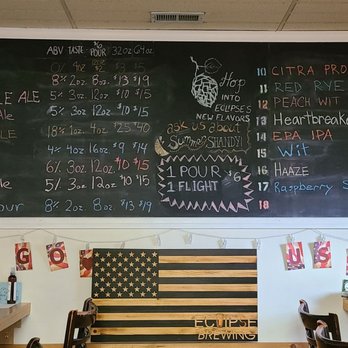 ABV TASTE $6 POUR 32oz 64oz
8% 2oz. 8oz. $13 $19
ALE 5% 3oz. 12oz. $10 $15
5% 3oz. 12oz. $10 $15
4% 4oz. 16oz. $9 $14
6% 3oz. 12oz $10 $15
5% 3oz. 12oz $10 $15
8% 2oz. 8oz $13 $19
Hop
INTO
ECLIPSE'S
NEW FLAVORS
ask us about
Summer SHANDY!
1 POUR
1 FLIGHT
$6
10 CITRA PRO
11 RED RYE
12 PEACH WIT
13 Heartbreake
14 EPA IPA
15 Wit
16 HAAZE
17 Raspberry S
18
GO
US
ECLIPSE
BREWING